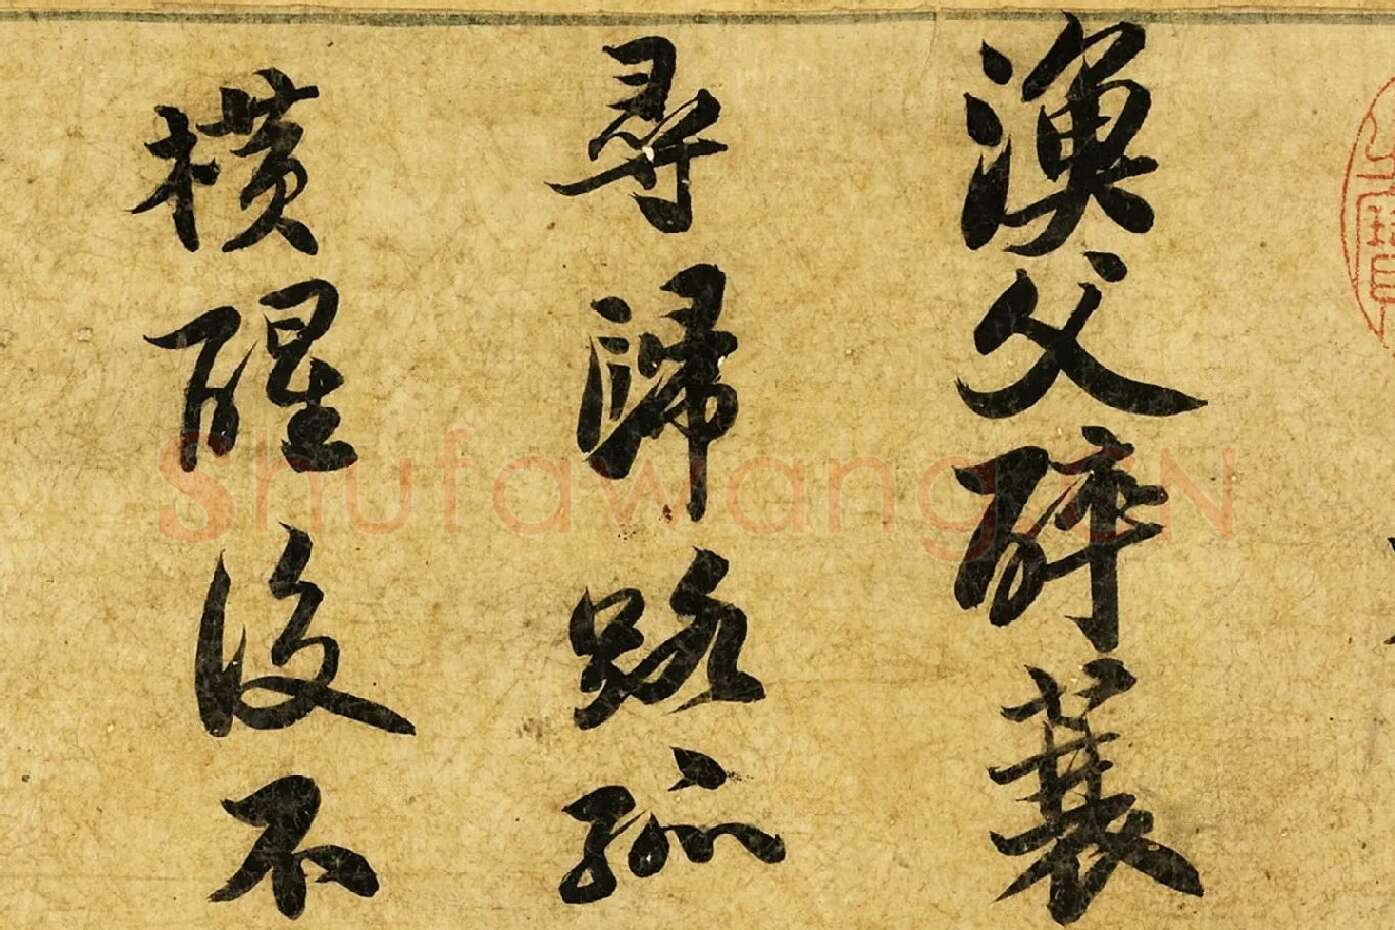 漁父醉蓑
尋歸路孤
橫醒後不
Shufawang.CN